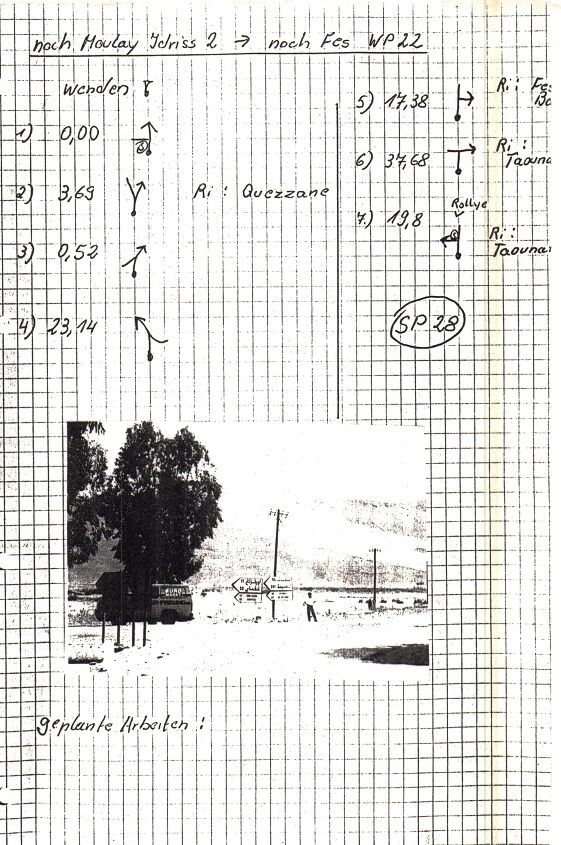 nach Moulay Idriss 2 → nach Fes WP 22
Wenden !
1) 0,00
2) 3,69 Ri : Quezzane
3) 0,52
4) 23,14
5) 17,38 Ri : Fes
6) 37,68 Ri : Taouna
7.) 19,8 Rallye Ri : Taouna
SP 28
EURO
geplante Arbeiten :